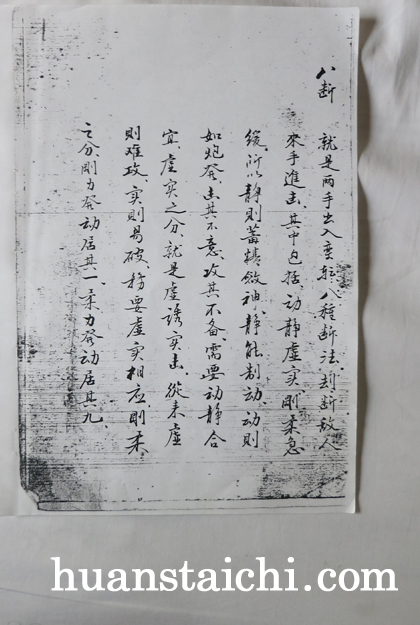 八断
就是两手出入变转八种断法、判断敌人
来手進击、其中包括、动静虚实刚柔急
缓、所以静则蓄精敛神、静能制动、动则
如炮發、出其不意、攻其不备、需要动静合
宜、虚实之分、就是虚诱实击、從来虚
则难攻、实则易破、務要虚实相应、刚柔
之分、剛力發动居其一、柔力發动居其九
huanstaichi.com